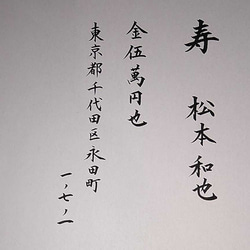 寿　松本和也
金伍萬円也
東京都千代田区永田町
一ノ七ノ一